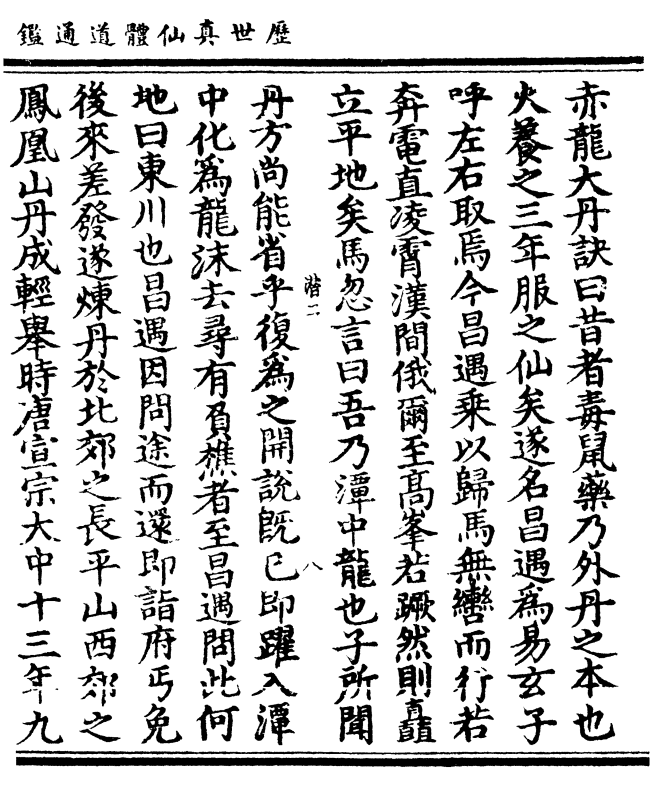 歷世真仙體道通鑑
赤龍大丹訣曰昔者毒鼠藥乃外丹之本也
火養之三年服之仙矣遂名昌遇爲易玄子
呼左右取焉今昌遇乘以歸馬無轡而行若
奔電直凌霄漢間俄爾至高峯若蹶然則矗
立平地矣馬忽言曰吾乃潭中龍也子所聞
潜二 八
丹方尚能省乎復爲之開說既已即躍入潭
中化爲龍沫去尋有負樵者至昌遇問此何
地曰東川也昌遇因問途而還即詣府丐免
後來差發遂煉丹於北郊之長平山西郊之
鳳凰山丹成輕舉時唐宣宗大中十三年九